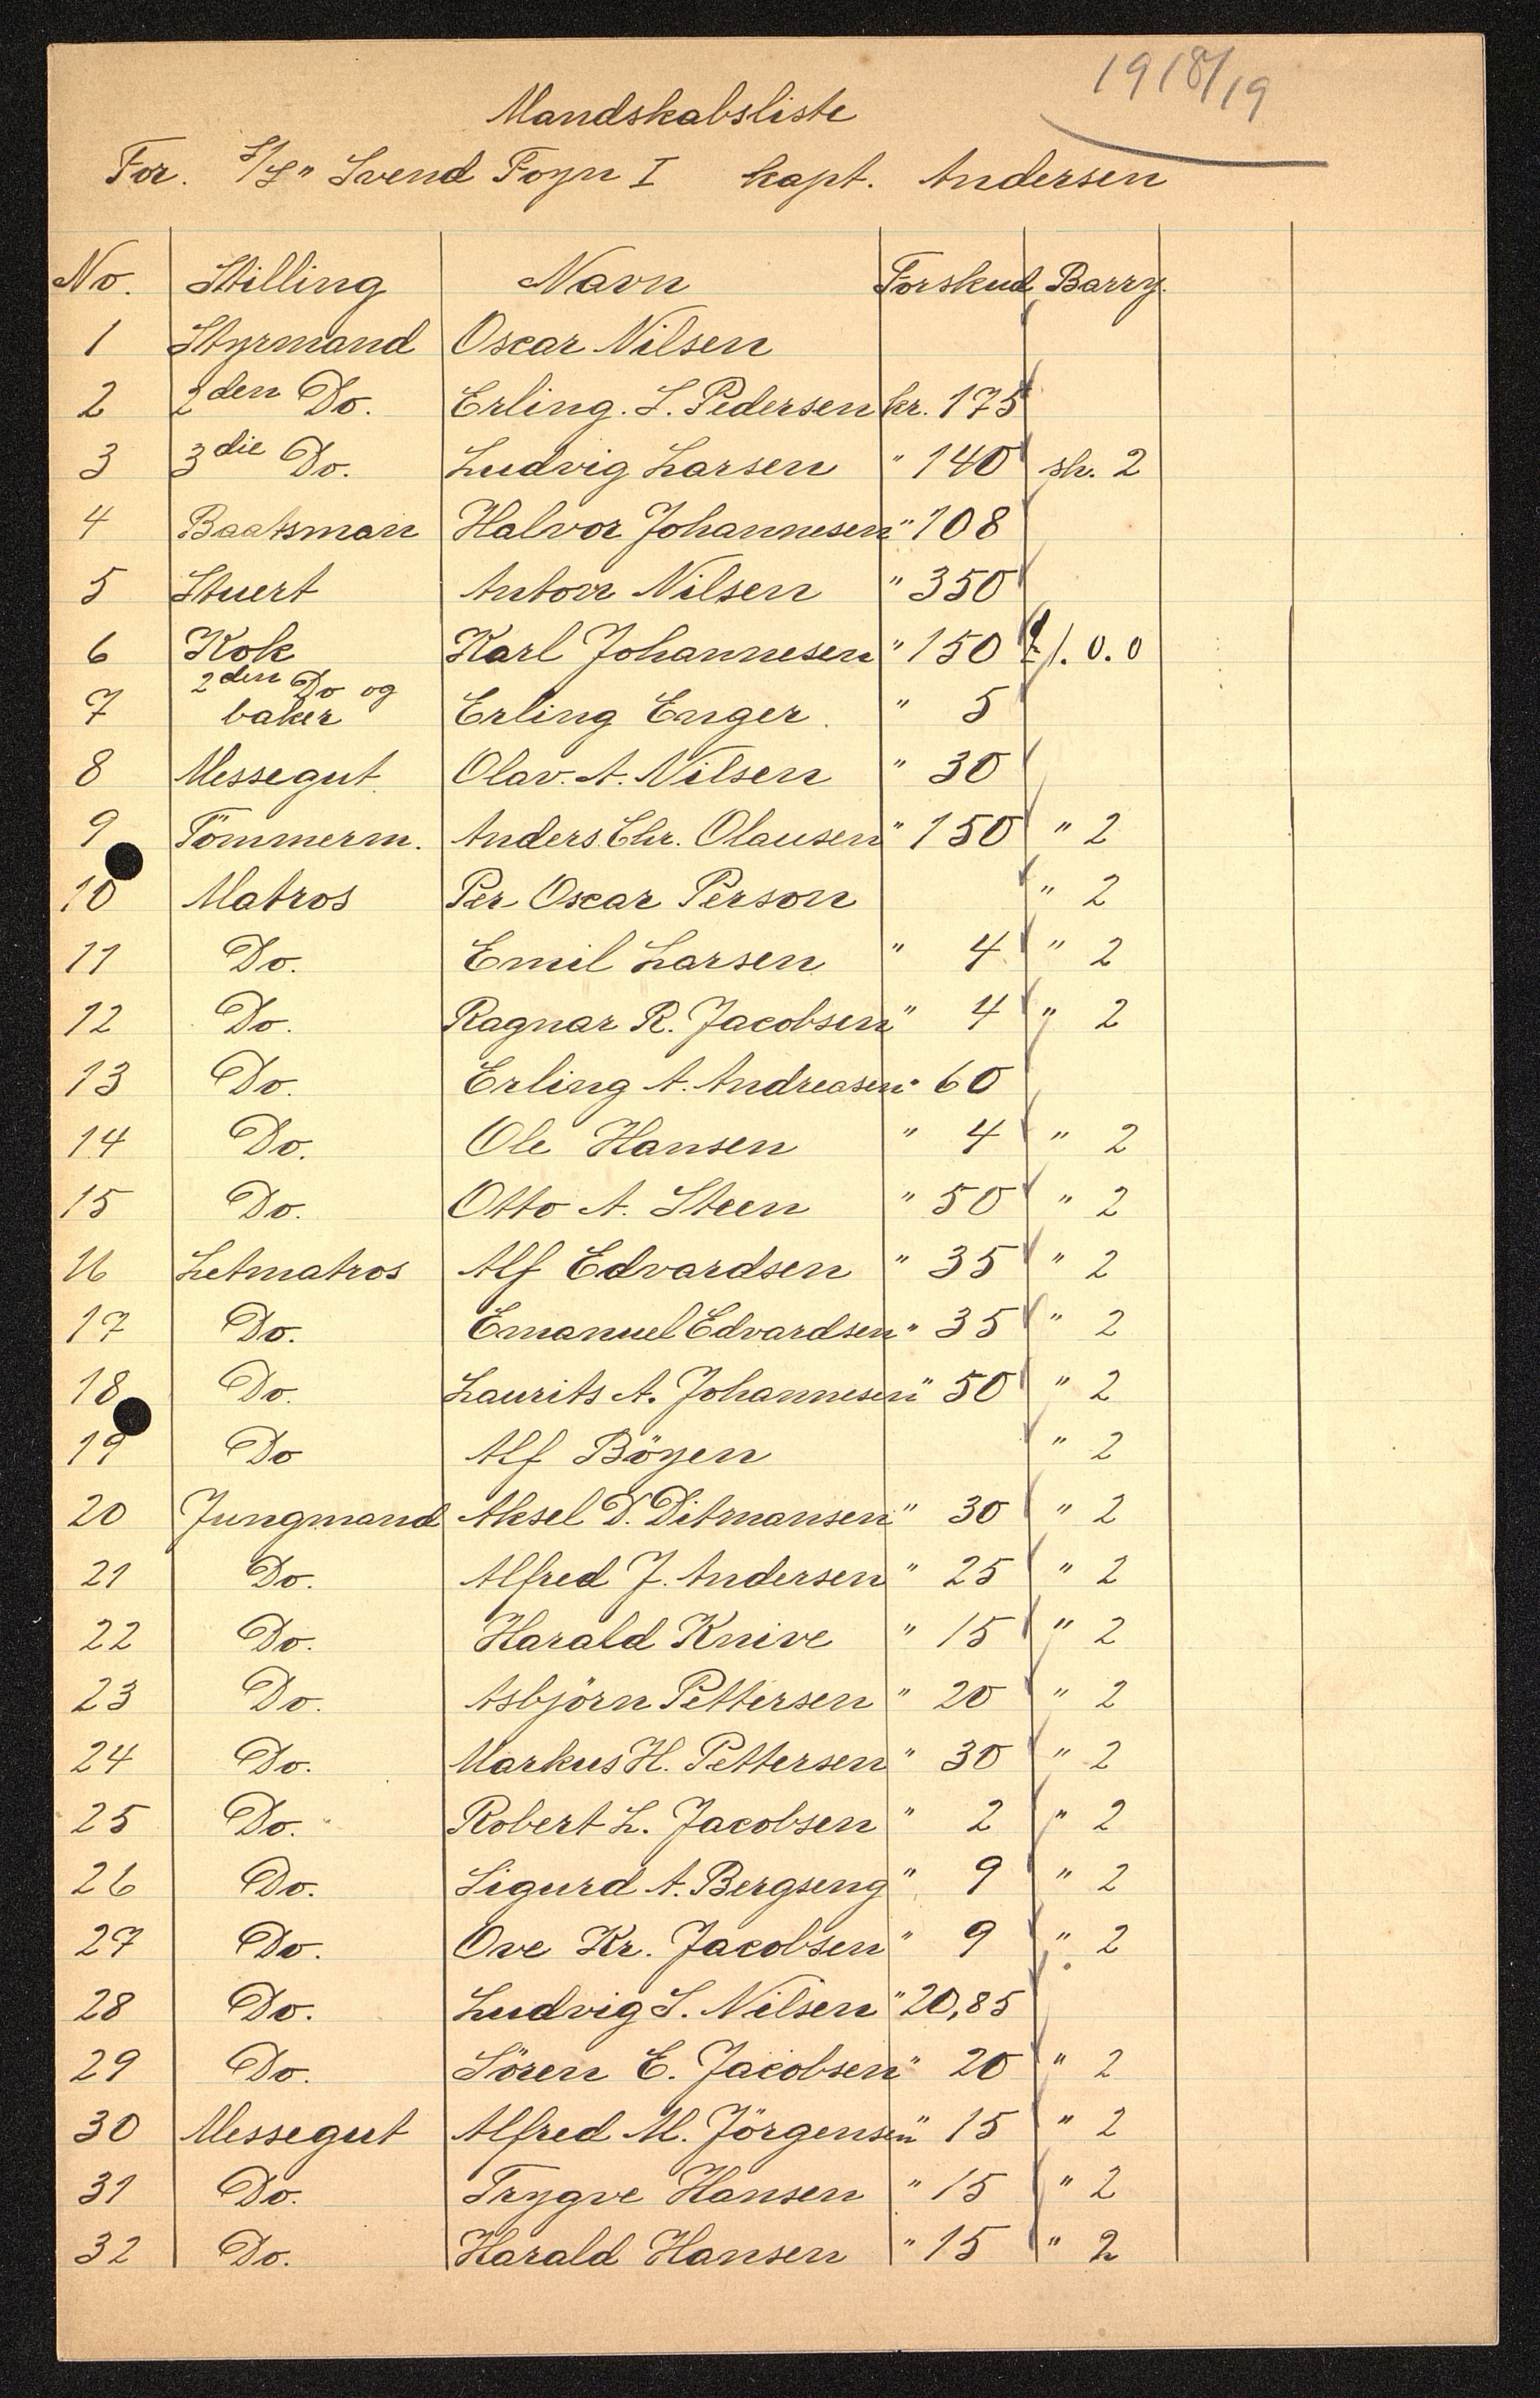 1918/19
Mandskabsliste
For. S/S" Svend Foyn I kapt. Andersen
No. Stilling Navn Forskud Barry.
1 Styrmand Oscar Nilsen
2 2den Do. Erling. S. Pedersen kr. 175
3 3die Do. Ludvig Larsen " 140 sh. 2
4 Baatsman Halvor Johannesen " 108
5 Stuert Anton Nilsen " 350
6 Kok Karl Johannesen " 150 £ 1. 0. 0
7 2den Do og baker Erling Enger. " 5
8 Messegut. Olav. A. Nilsen " 30
9 Tömmerm. Anders. Chr. Olausen " 150 " 2
10 Matros Per Oscar Person " 2
11 Do. Emil Larsen " 4 " 2
12 Do. Ragnar R. Jacobsen " 4 " 2
13 Do. Erling A. Andreasen " 60
14 Do. Ole Hansen " 4 " 2
15 Do. Otto A. Steen " 50 " 2
16 Letmatros Alf Edvardsen " 35 " 2
17 Do. Emanuel Edvardsen " 35 " 2
18 Do. Laurits A. Johannesen " 50 " 2
19 Do Alf Böyen " 2
20 Jungmand Aksel D. Ditmansen " 30 " 2
21 Do. Alfred J. Andersen " 25 " 2
22 Do. Harald Knive " 15 " 2
23 Do. Asbjörn Pettersen " 20 " 2
24 Do. Markus H. Pettersen " 30 " 2
25 Do. Robert L. Jacobsen " 2 " 2
26 Do. Sigurd A. Bergseng " 9 " 2
27 Do. Ove Kr. Jacobsen " 9 " 2
28 Do. Ludvig S. Nilsen " 20,85
29 Do. Sören E. Jacobsen " 20 " 2
30 Messegut Alfred M. Jörgensen " 15 " 2
31 Do. Trygve Hansen " 15 " 2
32 Do. Harald Hansen " 15 " 2